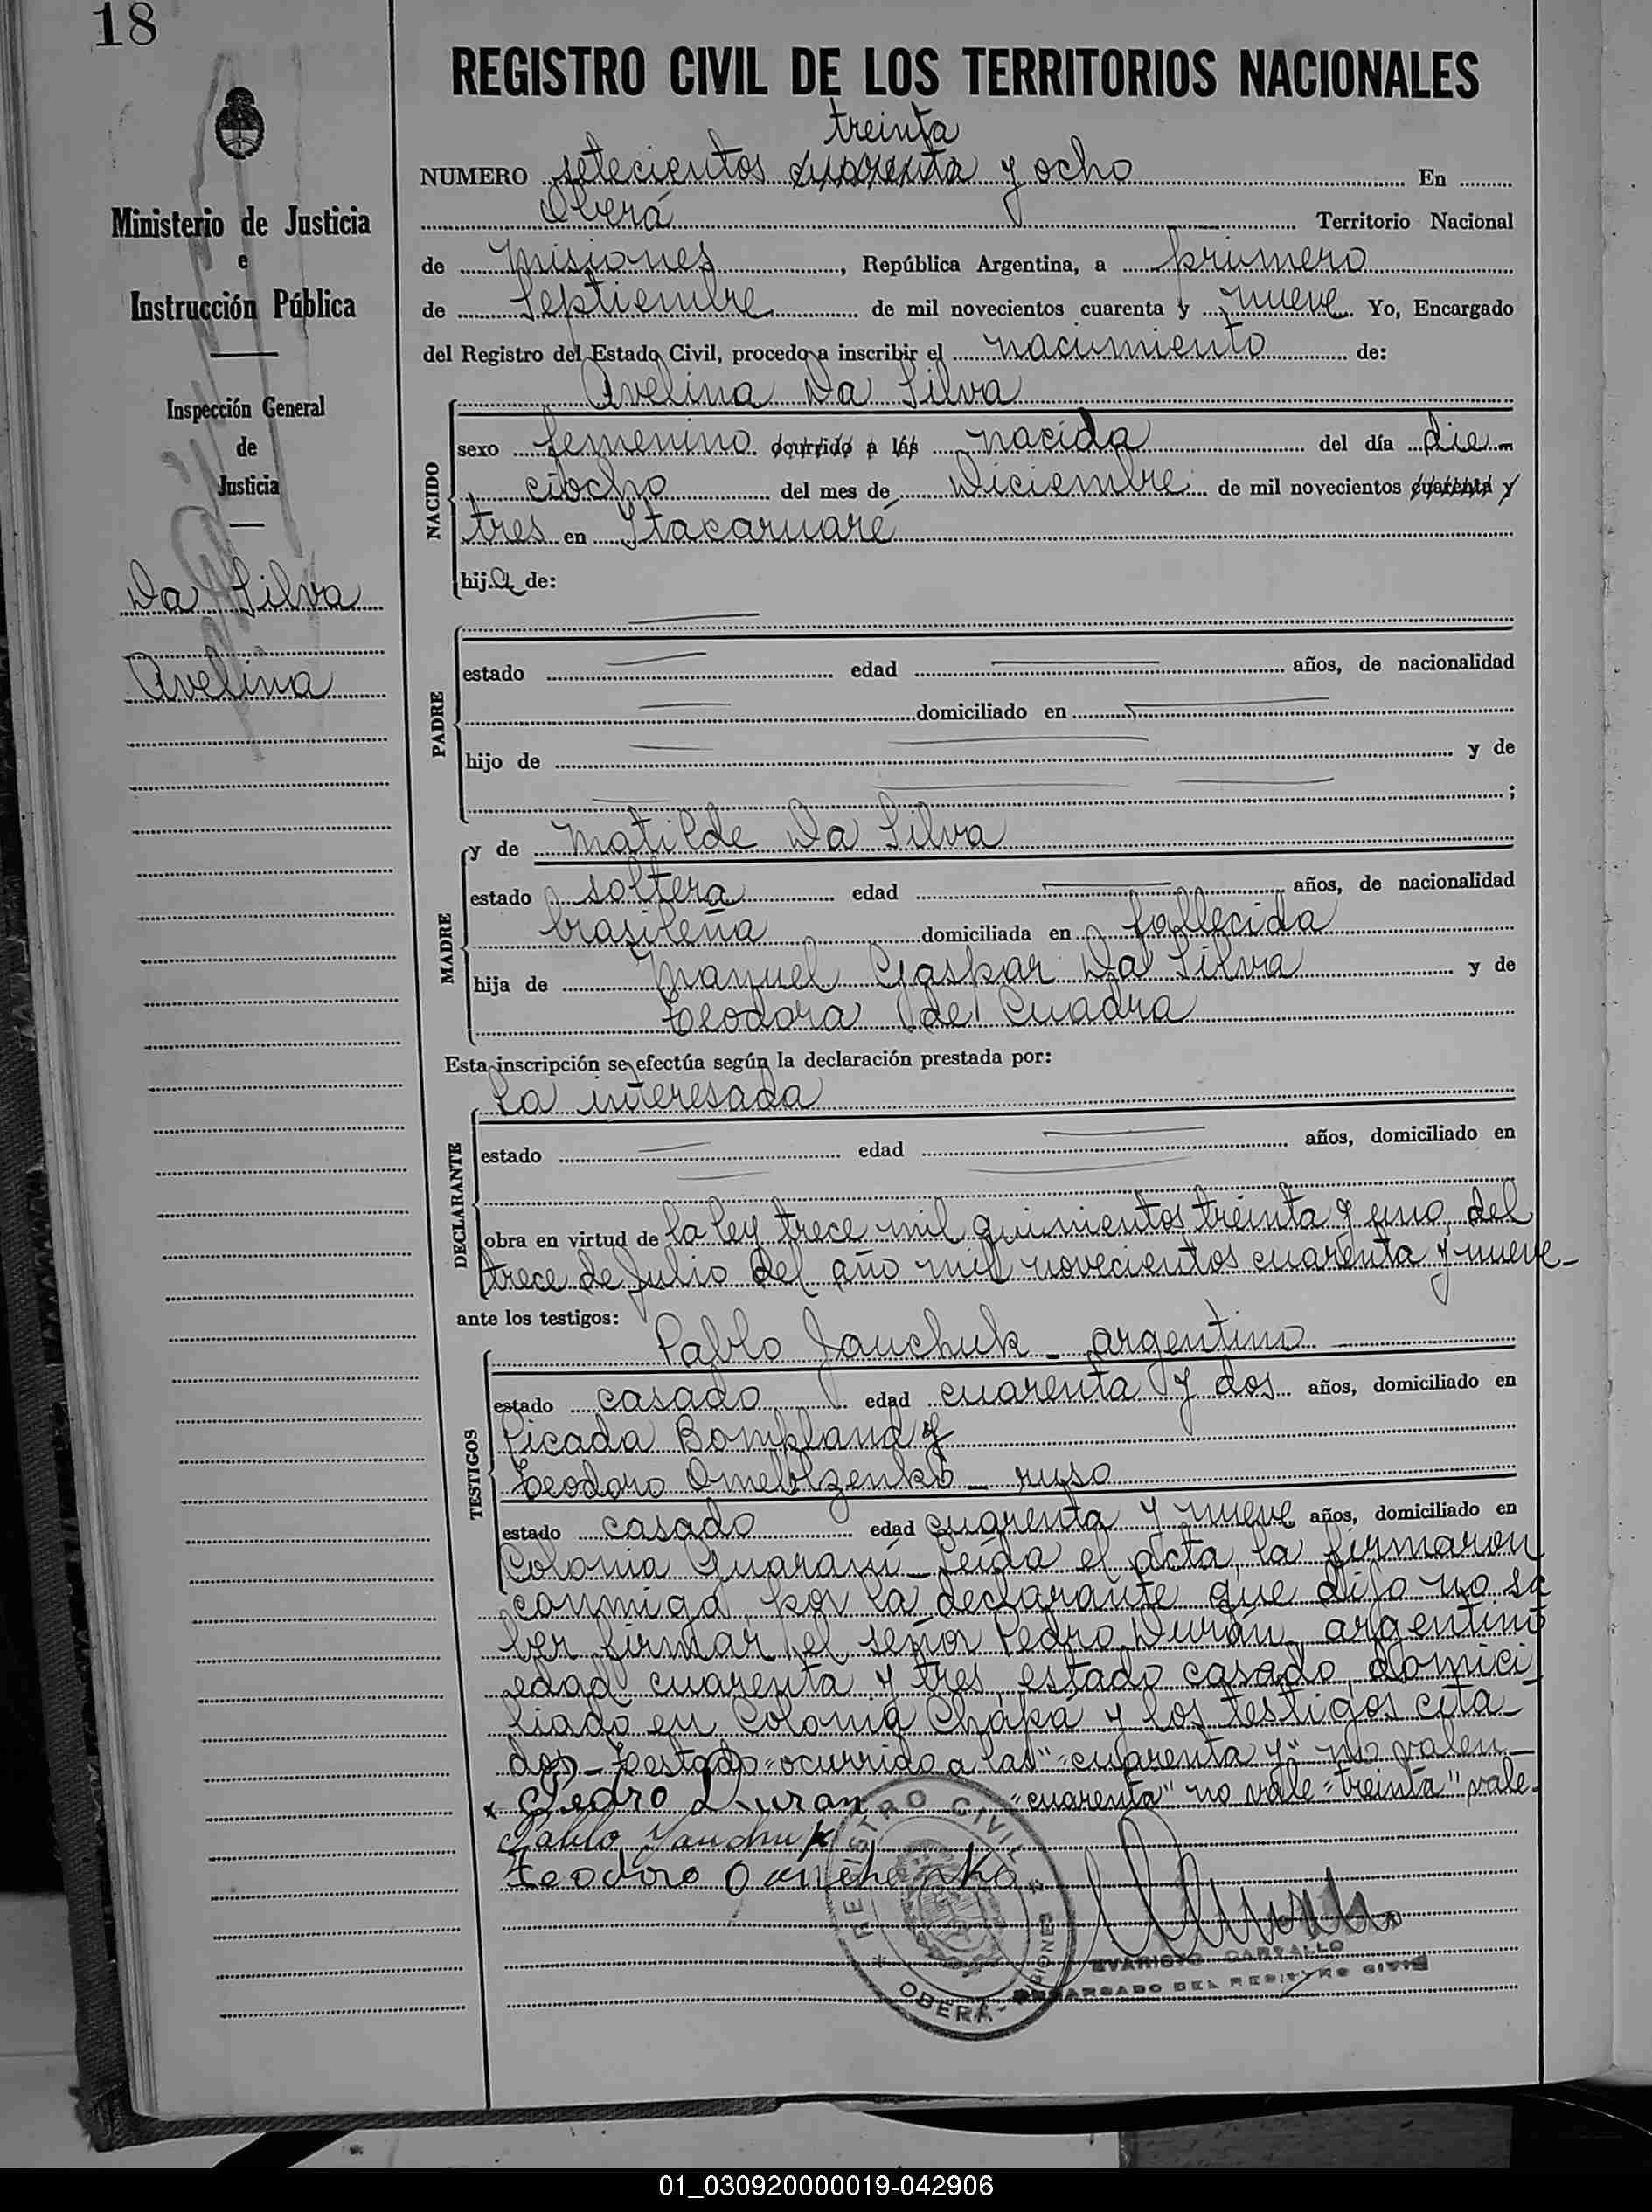 18
REGISTRO CIVIL DE LOS TERRITORIOS NACIONALES
treinta
NUMERO setecientos cuarenta y ocho En
Oberá Territorio Nacional
de Misiones, República Argentina, a primero
de Septiembre de mil novecientos cuarenta y nueve Yo, Encargado
del Registro del Estado Civil, procedo a inscribir el nacimiento de:
Ministerio de Justicia
e
Instrucción Pública
Inspección General
de
Justicia
Da Silva
Avelina
NACIDO
Avelina Da Silva
sexo femenino ocurrido a las nacida del día die
ciocho del mes de Diciembre de mil novecientos cuarenta y
tres en Itacaruaré
hija de:
PADRE
estado edad años, de nacionalidad
domiciliado en
hijo de y de
;
MADRE
y de Matilde Da Silva
estado soltera edad años, de nacionalidad
brasileña domiciliada en fallecida
hija de Manuel Gaspar Da Silva y de
Teodora de Cuadra
Esta inscripción se efectúa según la declaración prestada por:
DECLARANTE
La interesada
estado edad años, domiciliado en
obra en virtud de la ley trece mil quinientos treinta y uno, del
trece de Julio del año mil novecientos cuarenta y nueve-
ante los testigos:
TESTIGOS
Pablo Jauchuk - argentino
estado casado edad cuarenta y dos años, domiciliado en
Picada Bompland y
Teodoro - ruso
estado casado edad cuarenta y nueve años, domiciliado en
Colonia Guaraní - Leída el acta, la firmaron
conmigo, por la declarante que dijo no sa
ber firmar el señor Pedro Durán, argentino
edad cuarenta y tres, estado casado, domici
liado en Colonia Chapá y los testigos cita-
dos - Testado "ocurrido a las" "cuarenta y" no valen-
Pedro Duran "cuarenta" no vale "treinta" vale-
Pablo Yauchuk
Teodoro
REGISTRO CIVIL
OBERÁ - MISIONES
EVARISTO CARVALLO
ENCARGADO DEL REGISTRO CIVIL
01_030920000019-042906